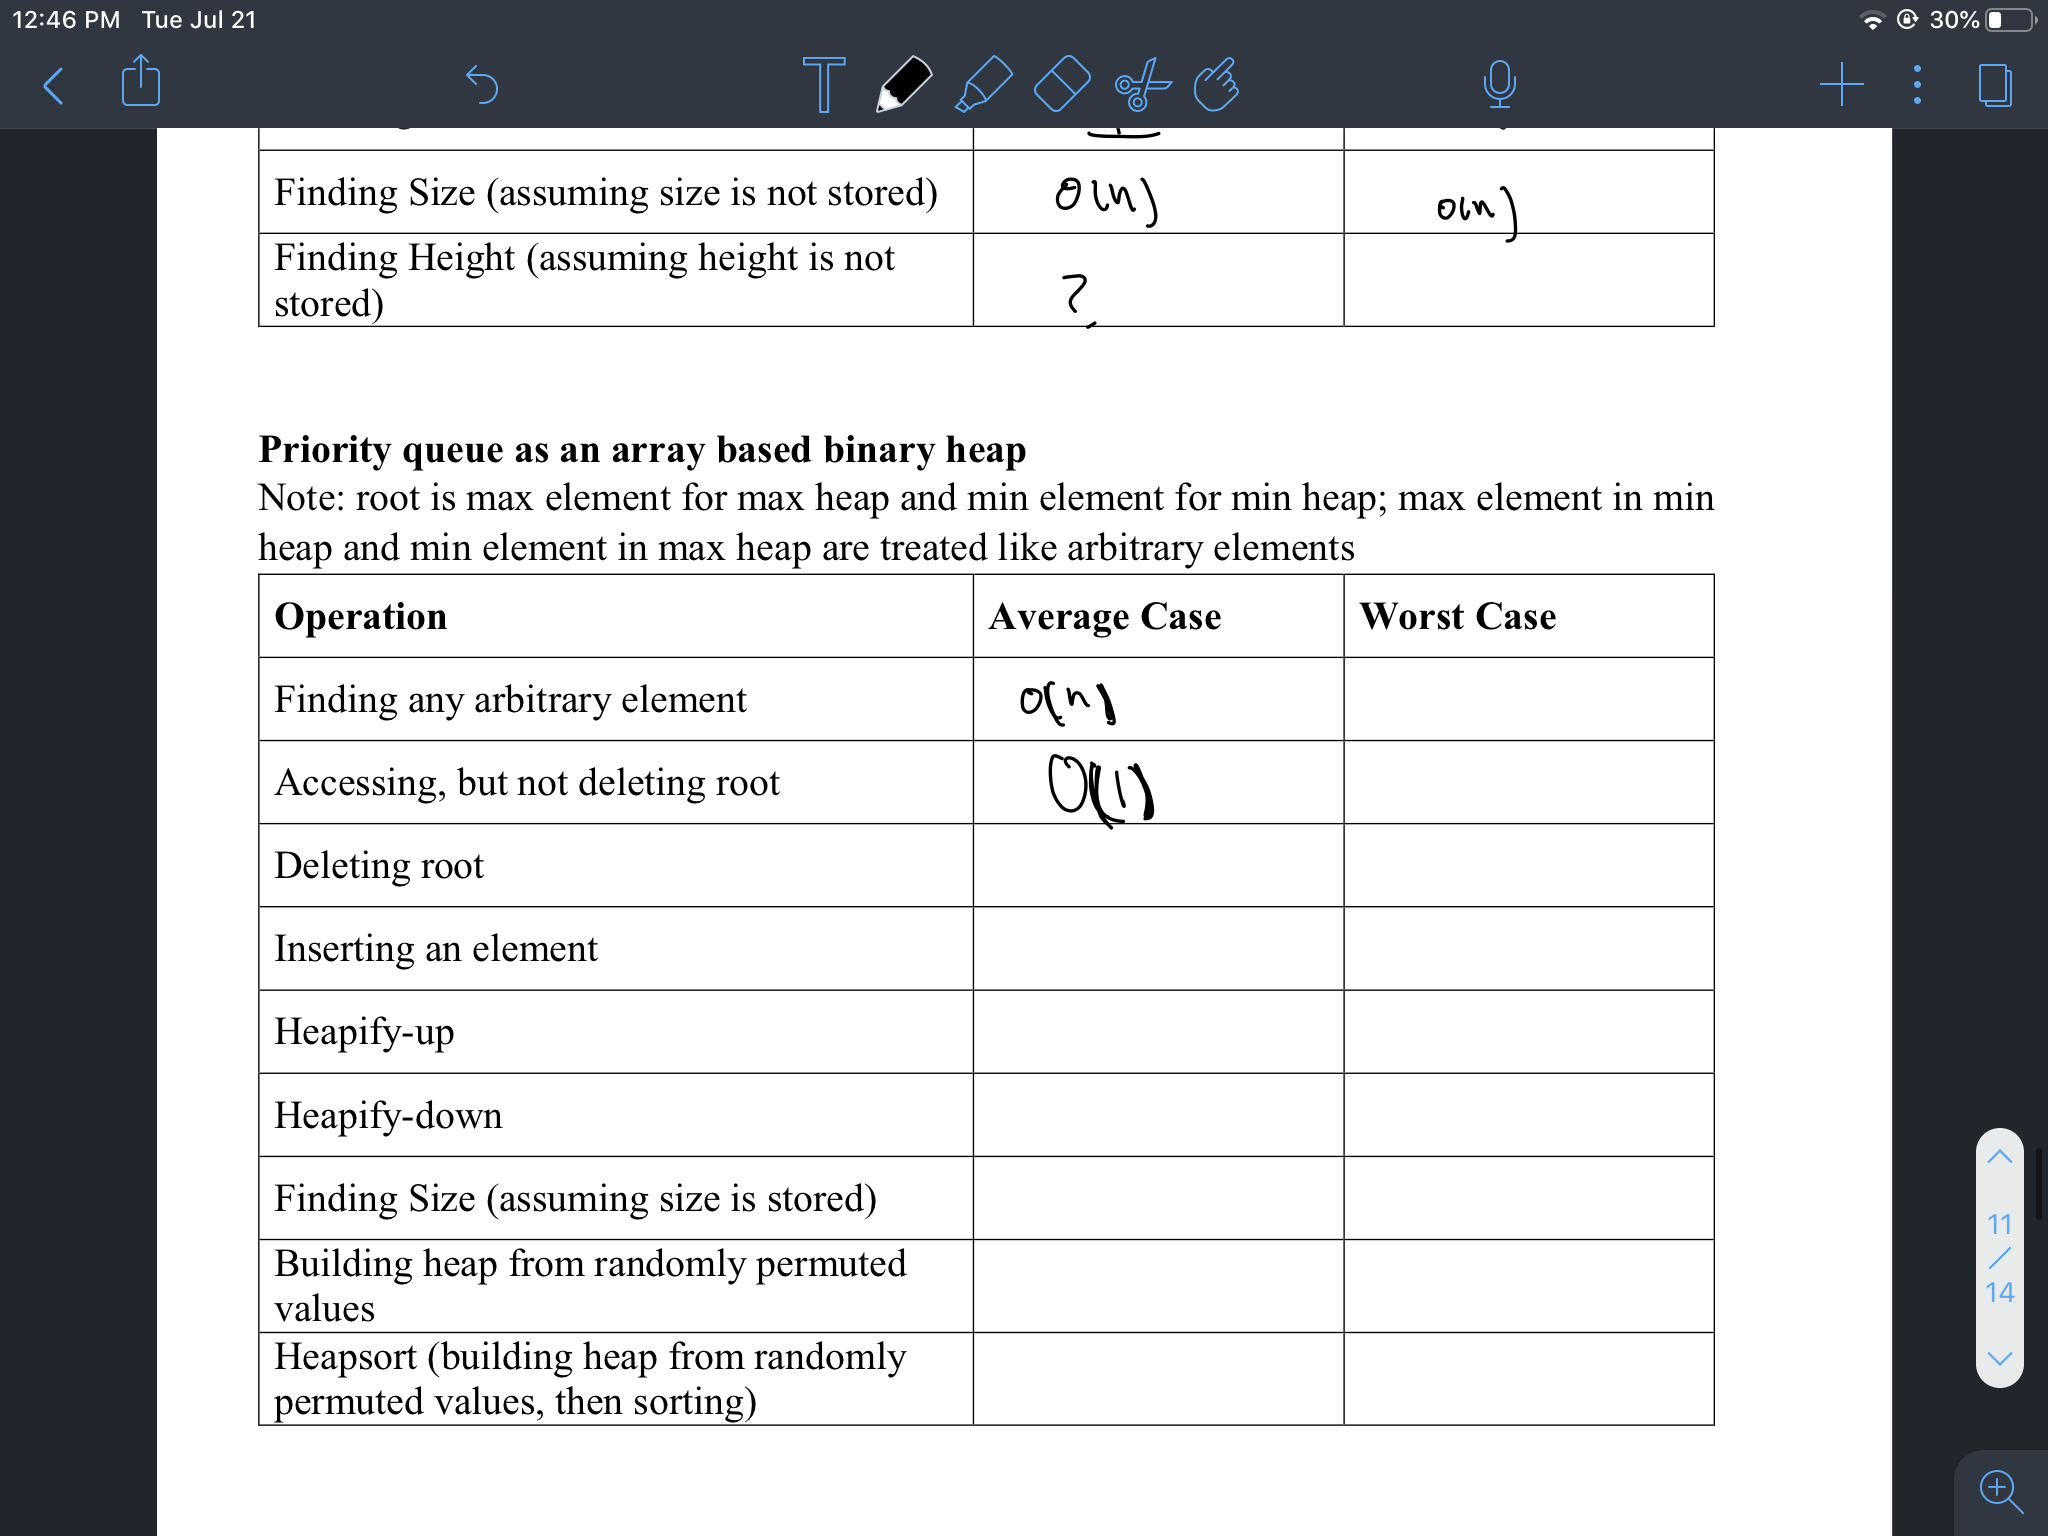 12:46 PM Tue Jul 21
30%
T
Finding Size (assuming size is not stored) O(n) O(n)
Finding Height (assuming height is not
stored) ?
Priority queue as an array based binary heap
Note: root is max element for max heap and min element for min heap; max element in min
heap and min element in max heap are treated like arbitrary elements
Operation Average Case Worst Case
Finding any arbitrary element O(n)
Accessing, but not deleting root O(1)
Deleting root
Inserting an element
Heapify-up
Heapify-down
Finding Size (assuming size is stored)
Building heap from randomly permuted
values
Heapsort (building heap from randomly
permuted values, then sorting)
11
/
14